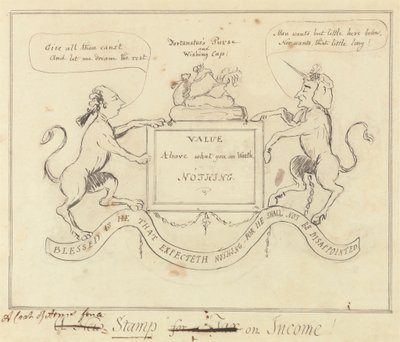 Give all thou canst
And let me dream the rest
Fortunatus's Purse
and
Wishing Cap!
Man wants but little here below,
Nor wants that little long!
VALUE
Above what you are Worth
NOTHING.
BLESSED IS HE THAT EXPECTETH NOTHING FOR HE SHALL NOT BE DISAPPOINTED
A Coat of Arms for a
A New Stamp for a Tax on Income!